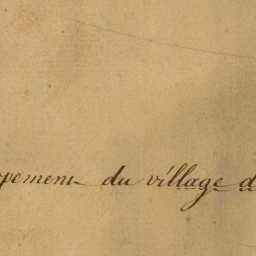 pemens du village d